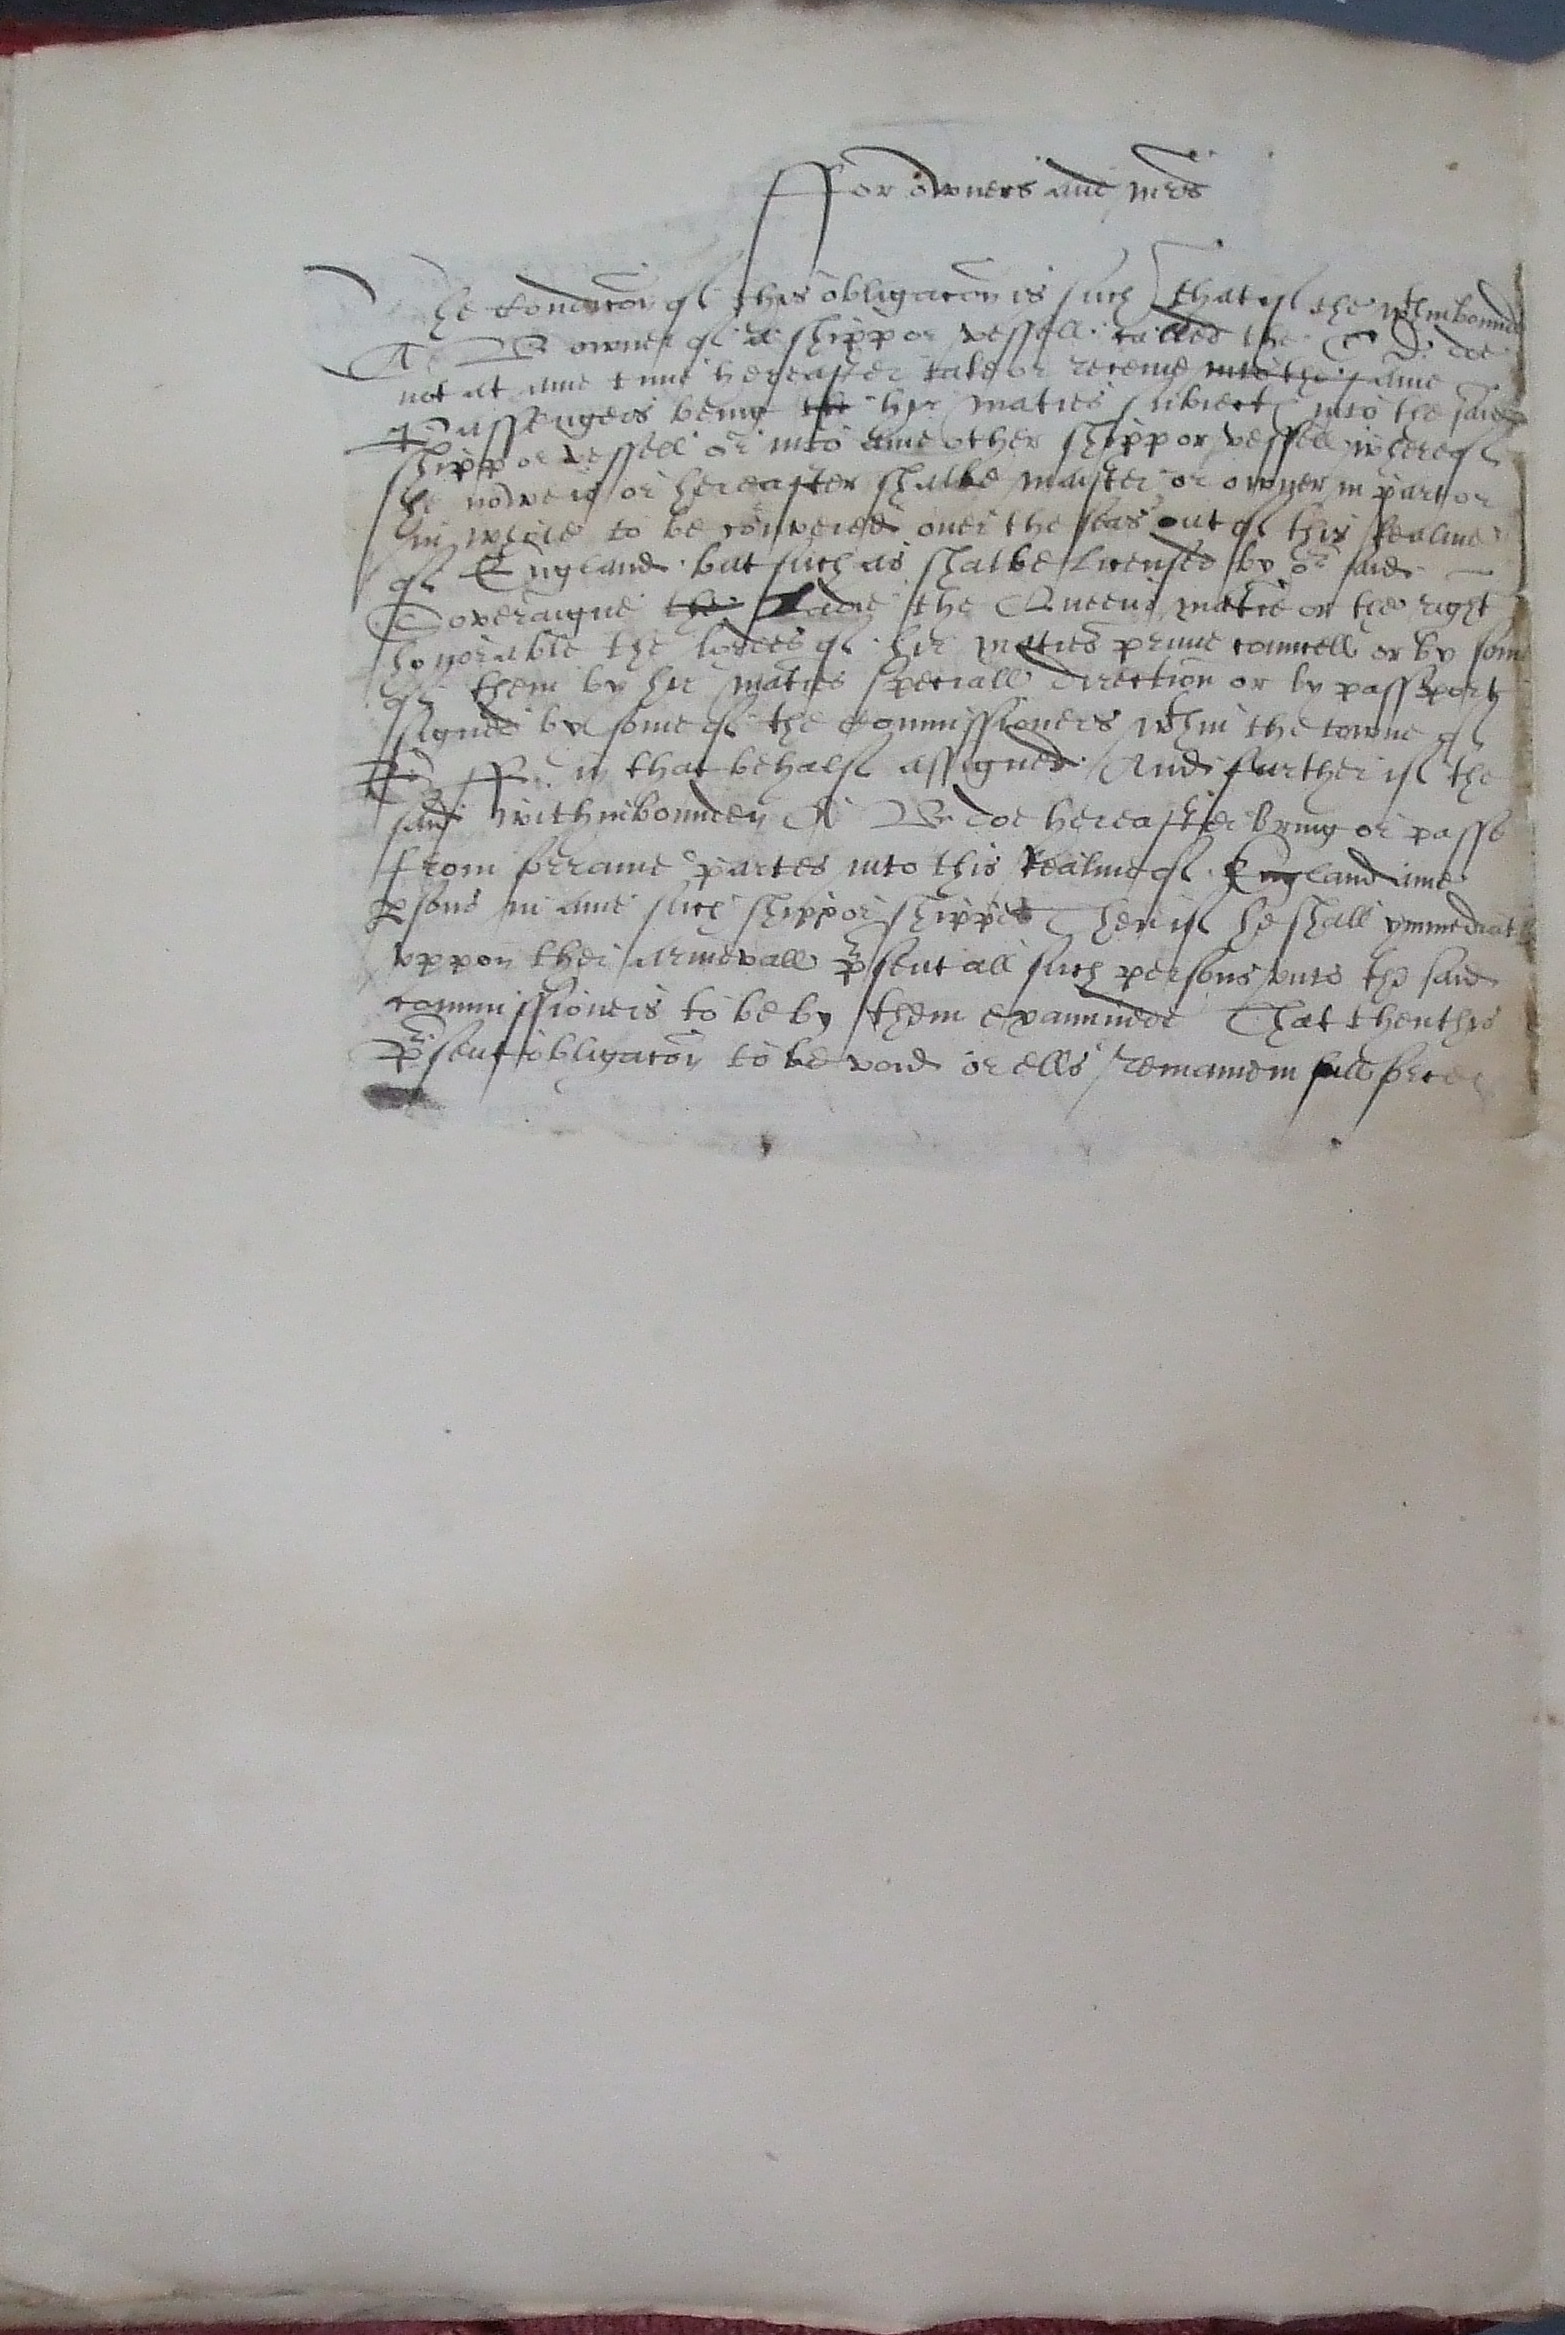 ffor owners and mrs
The condicon of this obligacon is such that if the wthinbounde
A B owner of a shipp or vessell called the C D doe
not at anie time hereafter take or receiue into the same
Passengers being the her maties subiects into the said
shipp or vessell or into anie other shipp or vessell whereof
he nowe is or hereafter shalbe maister or owner in part or
in whole to be conveied ouer the seas out of this Realme
of England but such as shalbe licensed by or said
Soveraigne the Ladie the Queens matie or the right
honorable the lordes of hir maties priuie councell or by some
of them by hir maties speciall direction or by passport
signed by some of the commissioners wthin the towne of
E F in that behalf assigned And further if the
said withinbounden A B doe hereafter bring or passe
from forraine partes into this Realme of England anie
psons in anie such shipp or shippes Then if he shall ymmediatl
vppon their arrivall psent all such persons vnto the said
commissioners to be by them examinede That then this
psent obligacon to be void or ells remaine in full force